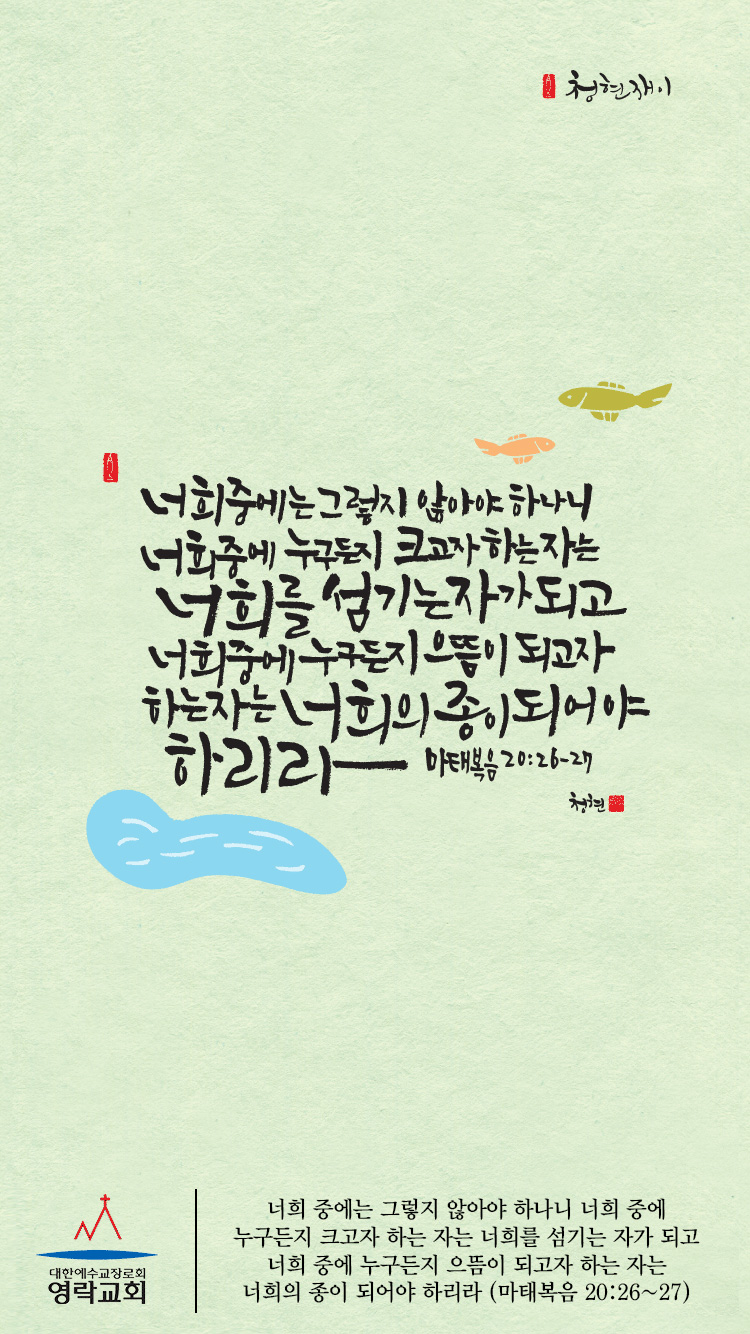 청현재이
너희중에는그렇지 않아야 하나니
너희중에 누구든지 크고자 하는자는
너희를 섬기는자가되고
너희중에누구든지으뜸이 되고자
하는자는너희의종이되어야
하리라 마태복음 20:26-27
청현
대한예수교장로회
영락교회
너희 중에는 그렇지 않아야 하나니 너희 중에
누구든지 크고자 하는 자는 너희를 섬기는 자가 되고
너희 중에 누구든지 으뜸이 되고자 하는 자는
너희의 종이 되어야 하리라 (마태복음 20:26~27)